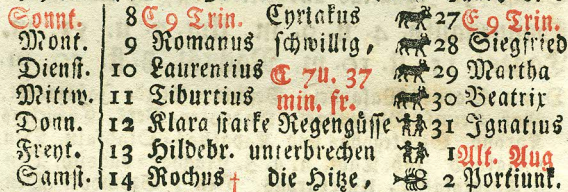 Sonnt. 8 E 9 Trin. Cyriakus 27 E 9 Trin.
Mont. 9 Romanus schwillig, 28 Siegfried
Dienst. 10 Laurentius ☾ 7 U. 37 29 Martha
Mittw. 11 Tiburtius min. fr. 30 Beatrix
Donn. 12 Klara starke Regengüsse 31 Ignatius
Freyt. 13 Hildebr. unterbrechen 1 Alt. Aug
Samst. 14 Rochus † die Hitze, 2 Portiunk.